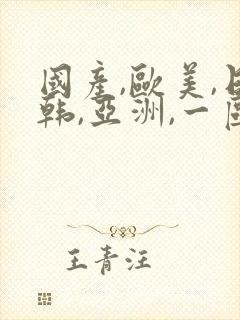 國產,歐美,日
韩,亞洲,一區
王青汪